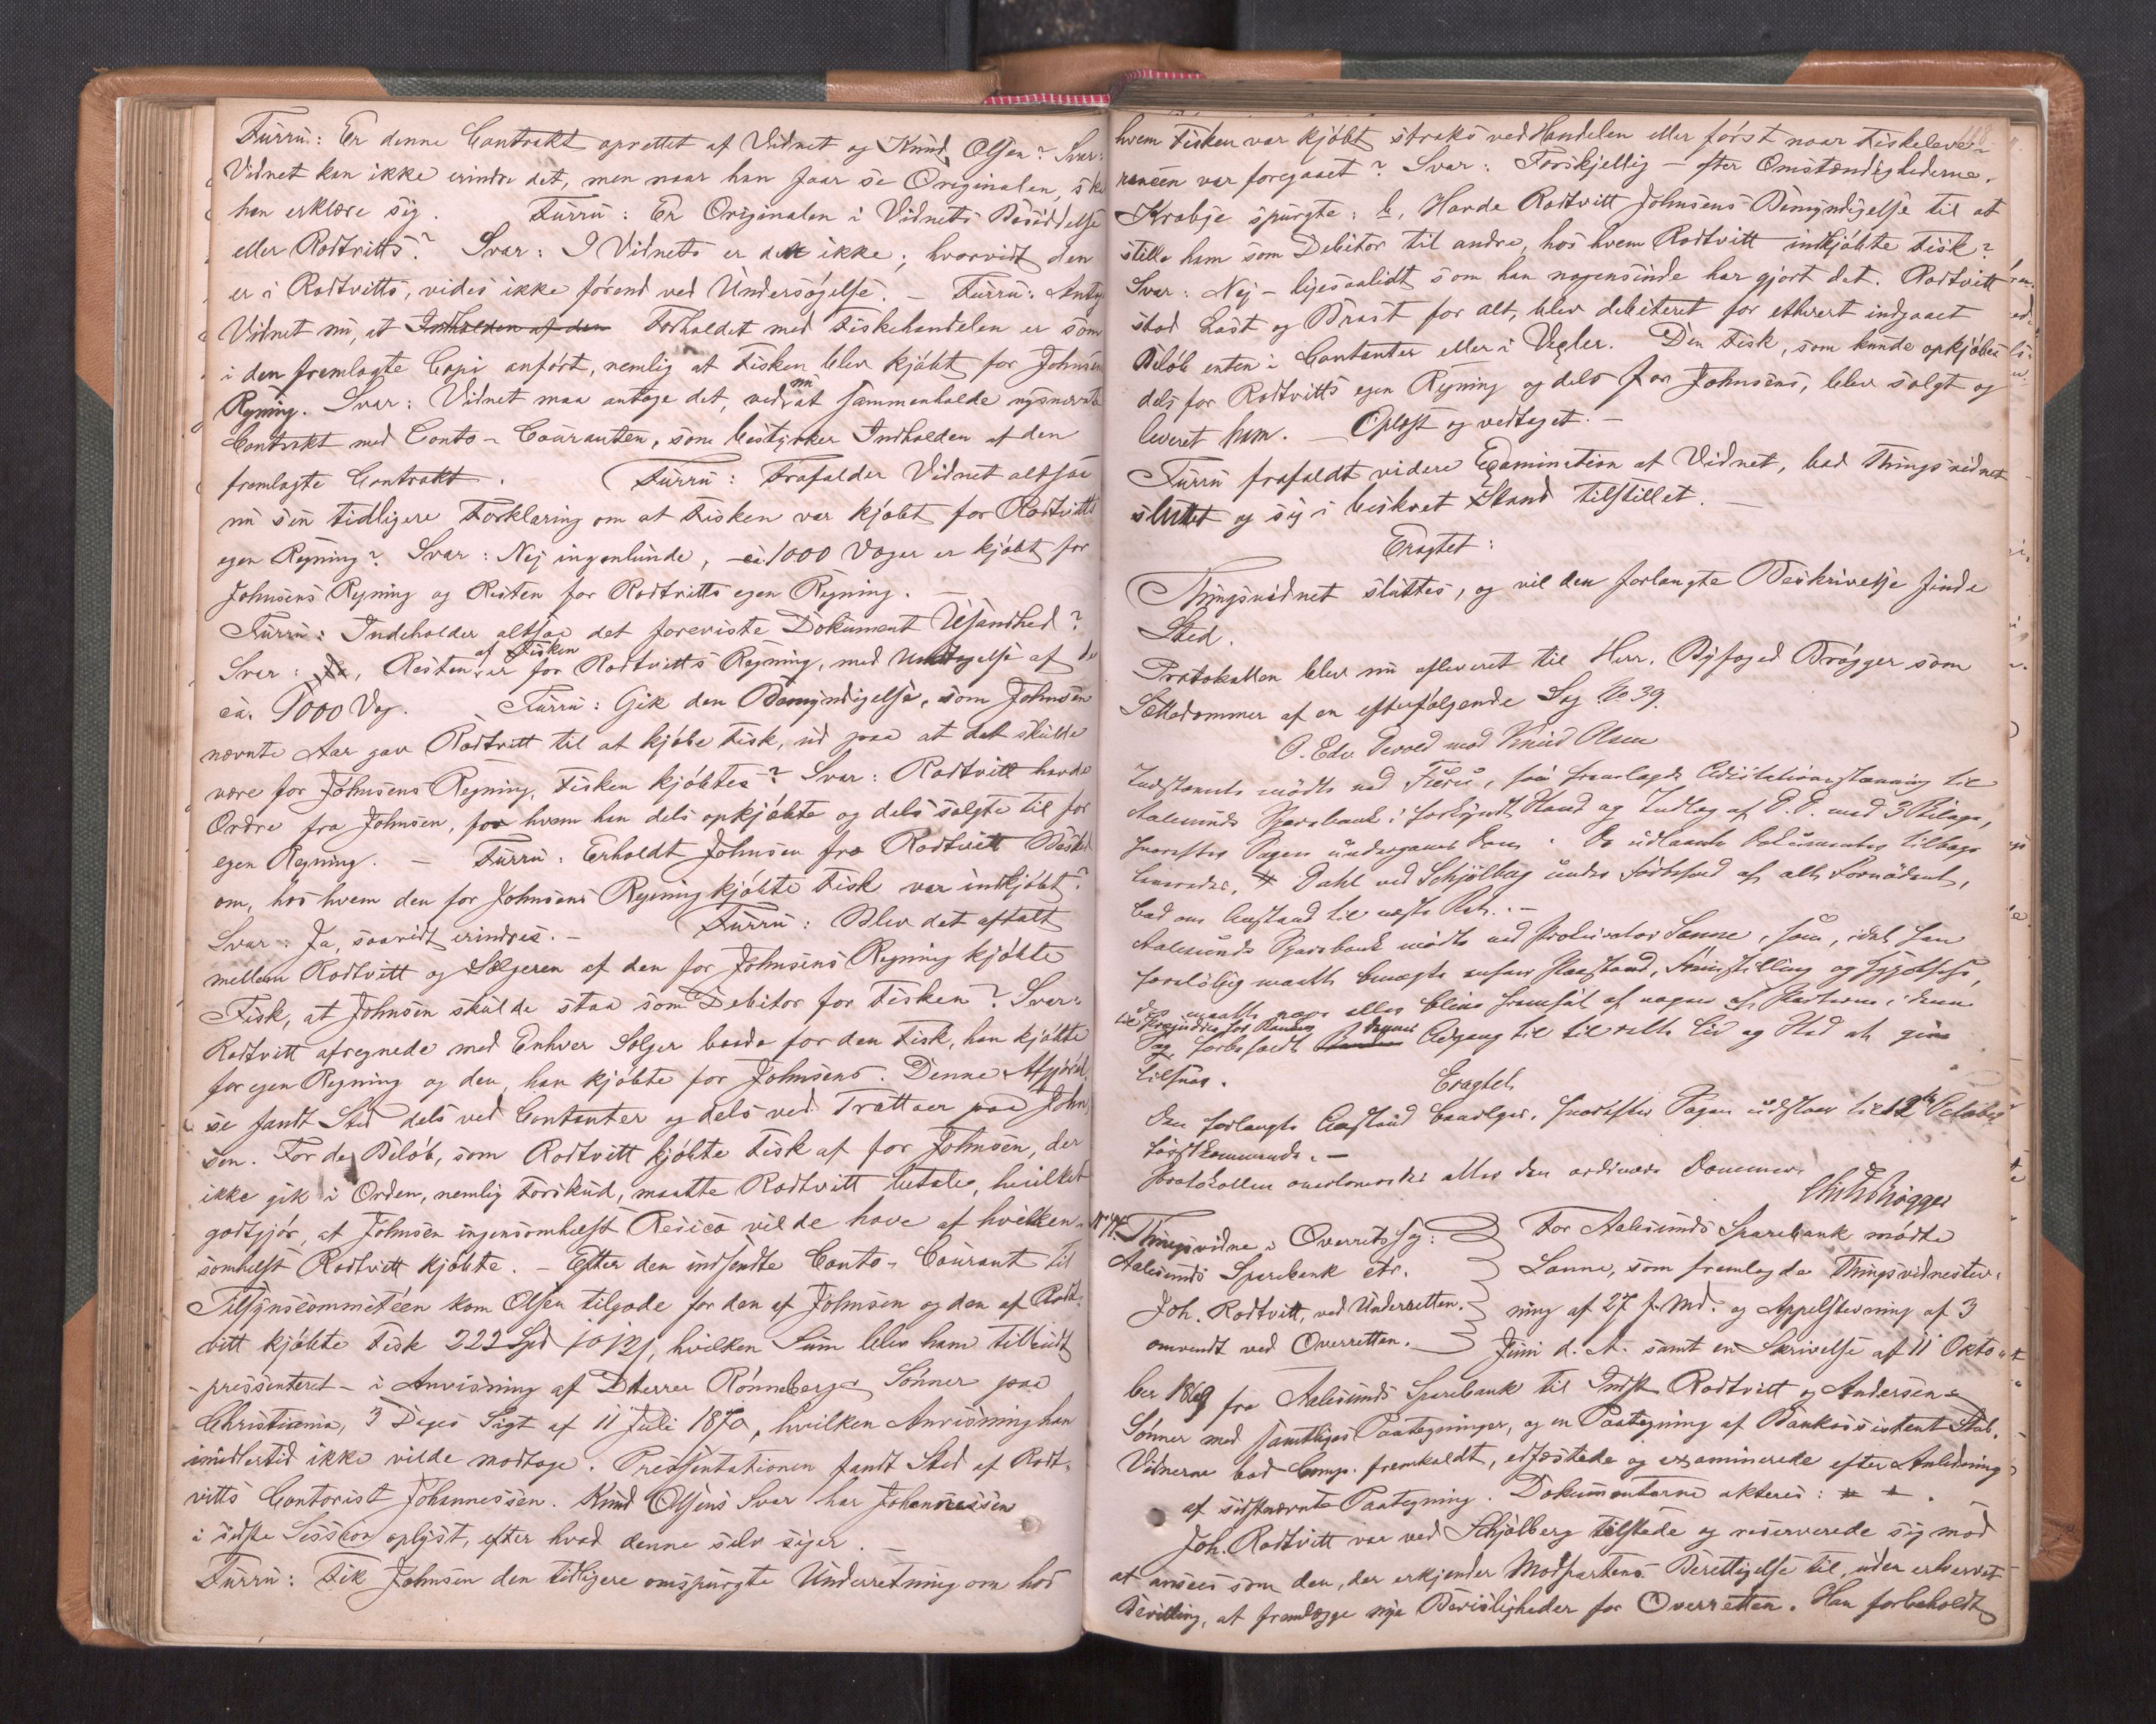 Furru: Er denne Contrakt oprettet af Vidnet og Knud Olsen? Svar:
Vidnet kan ikke erindre det, men naar han faar se Originalen, skal
han erklære sig. Furru: Er Originalen i Vidnets Besiddelse
eller Rodtvitts? Svar: I Vidnets er den ikke; hvorvidt den
er i Rodtvitts, vides ikke förend ved Undersögelse. – Furru: Antager
Vidnet nu, at Indholden af den Forholdet med Fiskehandelen er som
i den fremlagte Copi anfört, nemlig at Fisken blev kjöbt for Johnsens
Regning. Svar: Vidnet maa antage det, ved nu at sammenholde nysnævnte
Contrakt med Conto-Couranten, som bestyrker Indholden af den
fremlagte Contrakt. Furru: Frafalder Vidnet altsaa
nu sin tidligere Forklaring om at Fisken var kjöbt for Rodtvitts
egen Regning? Svar: Nej ingenlunde, – ca. 1000 Voger er kjöbt for
Johnsens Regning og Resten for Rodtvitts egen Regning. –
Furru: Indeholder altsaa det foreviste Dokument Usandhed?
Svar: Ja, Resten af Fisken er for Rodtvitts Regning, med Undtagelse af de
ca. 1000 Vog. Furru: Gik den Bemyndigelse, som Johnsen
nævnte Aar gav Rodtvitt til at kjöbe Fisk, ud paa at det skulde
være for Johnsens Regning, Fisken kjöbtes? Svar: Rodtvitt havde
Ordre fra Johnsen, for hvem han dels opkjöbte og dels solgte til for
egen Regning. – Furru: Erholdt Johnsen fra Rodtvitt Besked
om, hos hvem den for Johnsens Regning kjöbte Fisk var indkjöbt?
Svar: Ja, saavidt erindres. – Furru: Blev det aftalt
mellem Rodtvitt og Sælgeren af den for Johnsens Regning kjöbte
Fisk, at Johnsen skulde staa som Debitor for Fisken? Svar:
Rodtvitt afregnede med Enhver Sælger baade for den Fisk, han kjöbte
for egen Regning og den, han kjöbte for Johnsens. Denne Afgjörel-
se fandt Sted dels ved Contanter og dels ved Trattaer paa John-
sen. For de Belöb, som Rodtvitt kjöbte Fisk af for Johnsen, der
ikke gik i Orden, nemlig Forskud, maatte Rodtvitt betale, hvilket
godtgjör, at Johnsen ingensomhelst Resico vilde have af hvilken-
somhelst Rodtvitt kjöbte. – Efter den indsendte Conto-Courant til
Tilsynscommitéen kom Olsen tilgode for den af Johnsen og den af Rodt-
vitt kjöbte Fisk 222 Spd, hvilken Sum blev ham tilbudt
– pressenteret – i Anvisning af DHerrer Rönneberg & Sönner paa
Christiania, 3 Dages Sigt af 11 Juli 1870, hvilken Anvisning han
imidlertid ikke vilde modtage. Pressentationen fandt Sted af Rodt-
vitts Contorist Johannessen. Knud Olsens Svar har Johannessen
i sidste Session oplyst, efter hvad denne selv siger. –
Furru: Fik Johnsen den tidligere omspurgte Underretning om hos
hvem Fisken var kjöbt straks ved Handelen eller först naar Fiskeleve-
rancen var foregaaet? Svar: Forskjellig – efter Omstændighederne.
Krabje spurgte: b, Havde Rodtvitt Johnsens Bemyndigelse til at
stille ham som Debitor til andre, hos hvem Rodtvitt indkjöbte Fisk?
Svar: Nej – ligesaalidt som han nogensinde har gjort det. Rodtvitt
stod Last og Brast for alt, blev debiteret for ethvert indgaaet
Belöb enten i Contanter eller i Vexler. Den Fisk, som kunde opkjöbes
dels for Rodtvitts egen Regning og dels for Johnsens, blev solgt og
leveret ham. – Oplæst og vedtaget. –
Furru frafaldt videre Examination af Vidnet, bad Thingsvidnet
sluttet og sig i beskrevet Stand tilstillet. –
Eragtet:
Thingsvidnet sluttes, og vil den forlangte Beskrivelse finde
Sted.
Protokollen blev nu afleveret til Herr. Byfoged Brögger som
Settedommer af en efterfölgende Sag No 39.
O. Edv. Devold mod Knud Olsen
mödte ved Furru, som fremlagde til
Aalesunds Sparebank i forkyndt Stand og Indlæg af D. D. med 3 Bilage,
hvorefter Sagen undergaves Dom. De udlaante Dokumenter tilbage
leveredes. Dahl ved Schjölberg under Forbehold af alt Fornödent,
bad om Anstand til næste Ret. –
Aalesunds Sparebank mödte ved Prokurator Sanne, som, idet han
foreløbig maatte benægte enhver Paastand, Fremstilling og Hypothese,
der maatte være eller blive fremsat af nogen af Parterne i denne
Sag til Præjudice for Banken, forbeholdt denne Adgang til til rette Tid og Sted at give
Tilsvar.
Eragtet
Den forlangte Anstand bevilges, hvorefter Sagen udstaar til 12te October
förstkommende. –
Protokollen overleveredes atter den ordinære Dommer.
Brögger
Thingsvidne i Overretssag:
Aalesunds Sparebank etc.
Joh. Rodtvitt, ved Underretten.
omvendt ved Overretten.
For Aalesunds Sparebank mödte
Sanne, som fremlagde Thingsvidnestev-
ning af 27 f. Md. og Appelstevning af 3
Juni d. A. samt en Skrivelse af 11 Okto-
ber 1869 fra Aalesunds Sparebank til Indst. Rodtvitt og Andersen &
Sönner med samtliges Paategninger, og en Paategning af Bankassistent Stub.
Vidnerne bad Comp. fremkaldt, edfæstede og examinerede efter Anledning
af sidstnævnte Paategning. Dokumenterne akteres:
Joh. Rodtvitt var ved Schjölberg tilstede og reserverede sig mod
at ansees som den, der erkjender Modpartens Berettigelse til, uden erhvervet
Bevilling, at fremlægge nye Bevisligheder for Overretten. Han forbeholdt